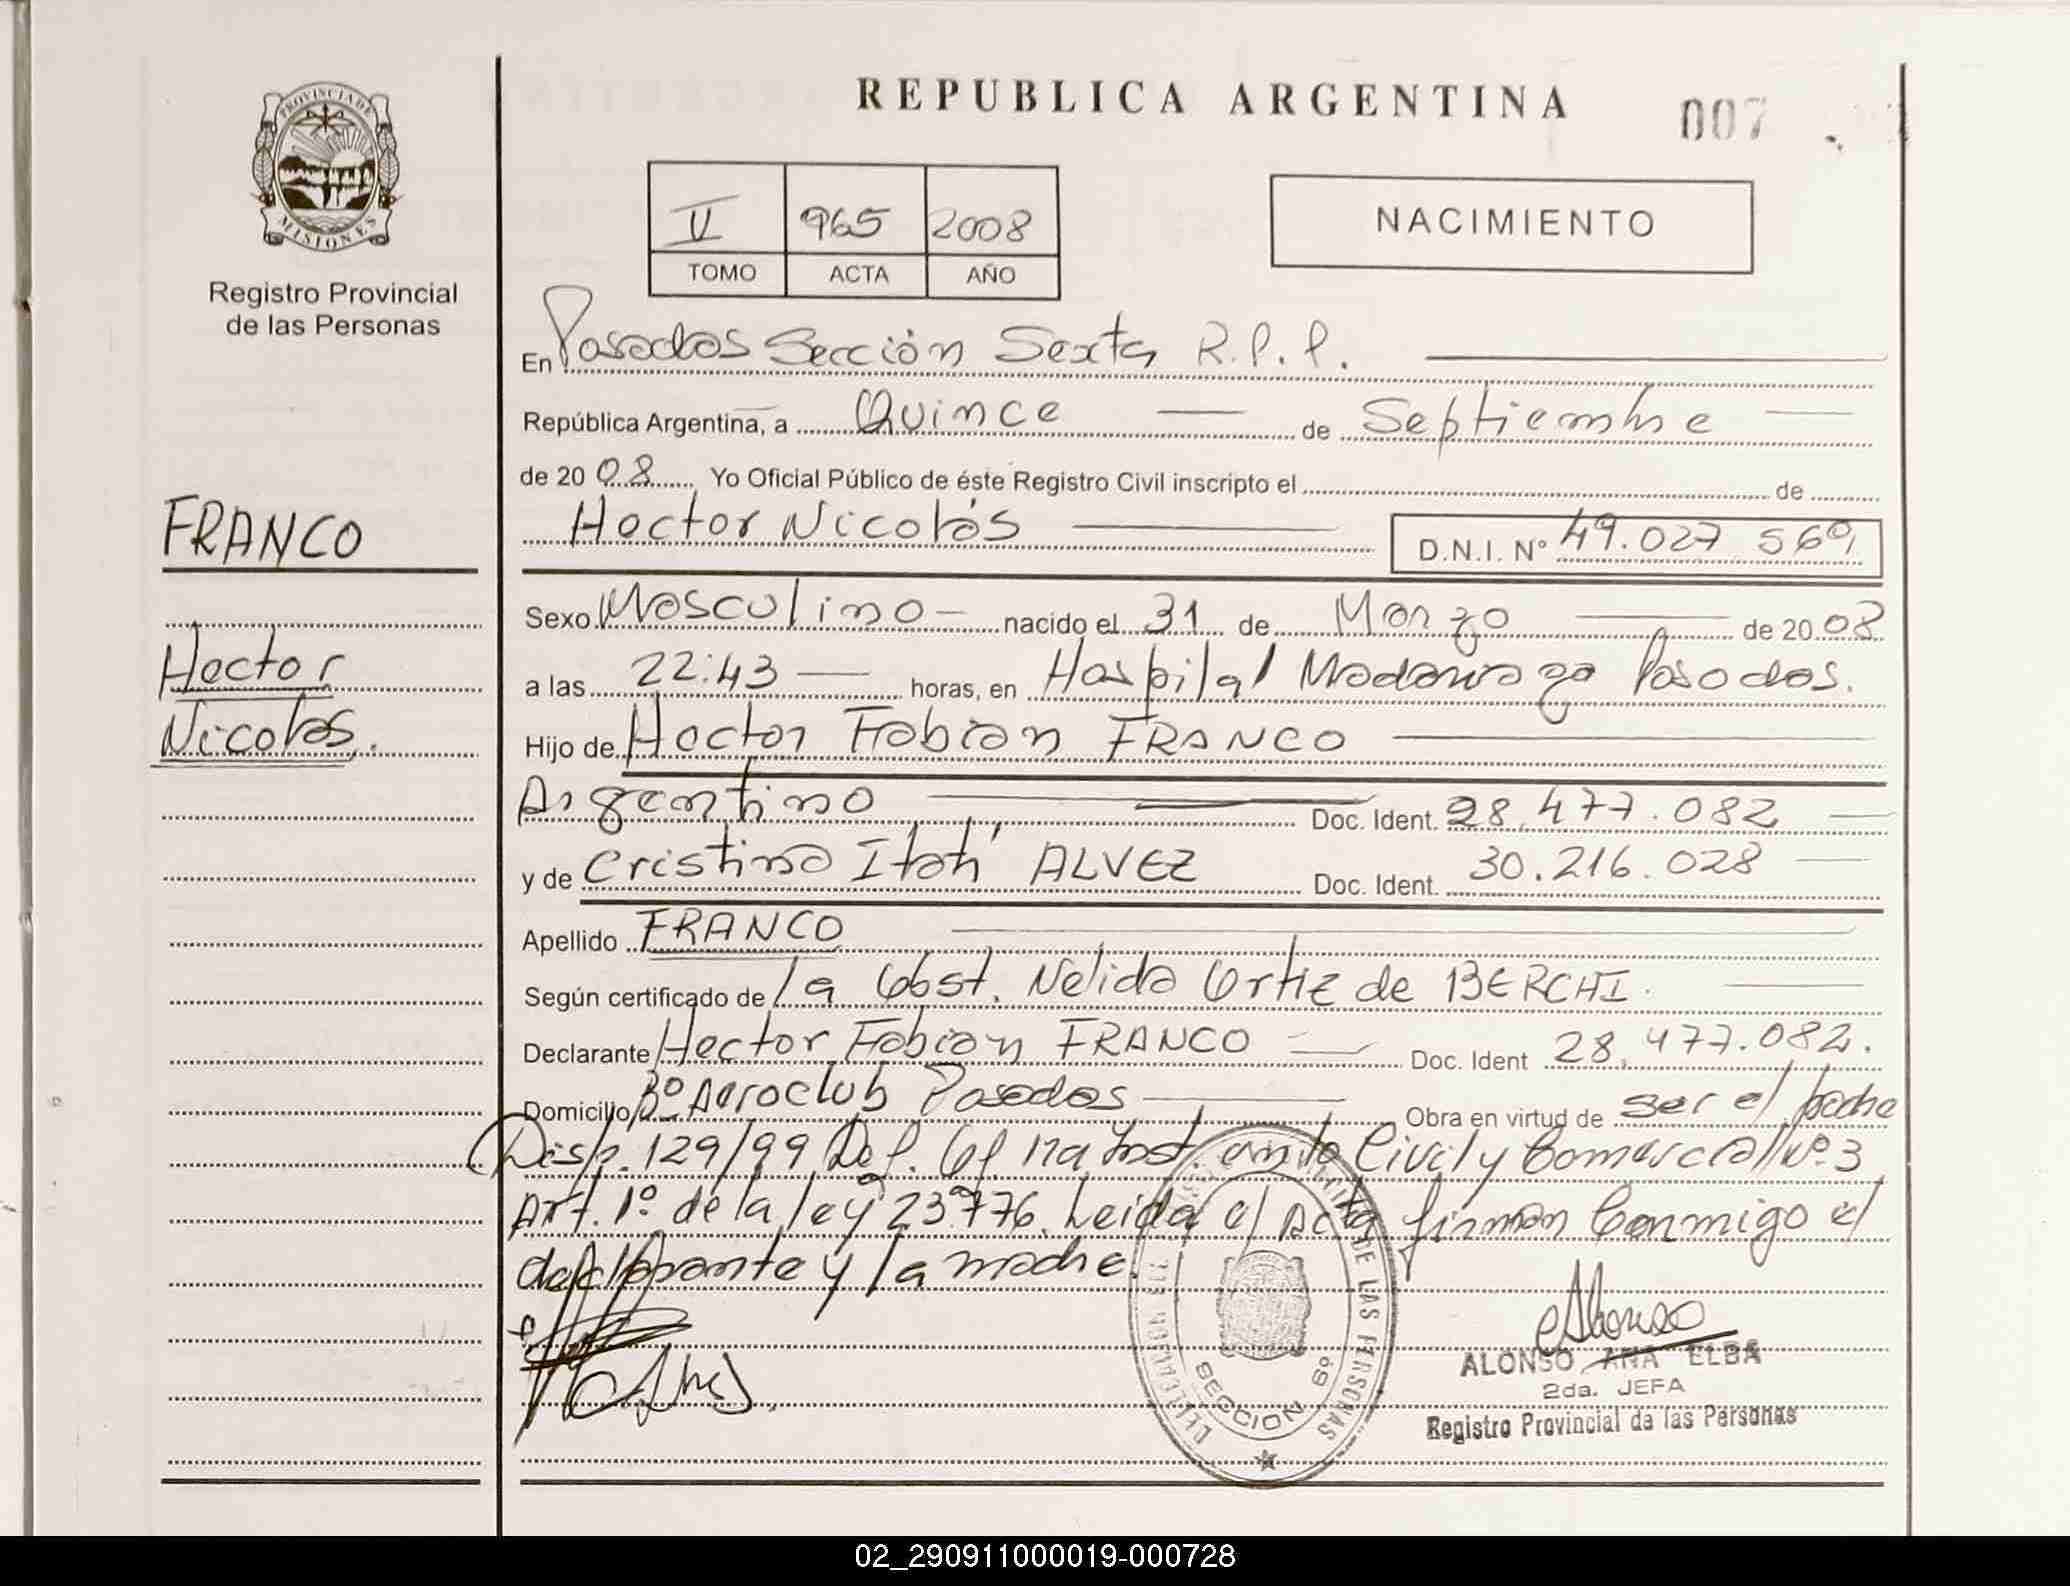 REPUBLICA ARGENTINA
007
PROVINCIA DE
MISIONES
Registro Provincial
de las Personas
V 965 2008
TOMO ACTA AÑO
NACIMIENTO
FRANCO
Hector
Nicolás.
En Posadas Sección Sexta R.P.P.
República Argentina, a Quince de Septiembre
de 2008 Yo Oficial Público de éste Registro Civil inscripto el de
Hector Nicolás D.N.I. Nº 49.027 569
Sexo Masculino nacido el 31 de Marzo de 2008
a las 22:43 horas, en Hospital Madariaga Posadas.
Hijo de Hector Fabian FRANCO
Argentino Doc. Ident. 28.477.082
y de Cristina Itatí ALVEZ Doc. Ident. 30.216.028
Apellido FRANCO
Según certificado de la Obst. Nelida Ortiz de BERCHI.
Declarante Hector Fabian FRANCO Doc. Ident 28.477.082.
Domicilio Bº Aeroclub Posadas Obra en virtud de ser el padre
Disp. 129/99 Def. Of. 1ra Inst. en lo Civil y Comercial Nº 3
Art. 1º de la ley 23.776. Leida el Acta firman Conmigo el
declarante y la madre.
DE LAS PERSONAS
SECCION 6º
ALONSO ANA ELBA
2da. JEFA
Registro Provincial de las Personas
02_290911000019-000728